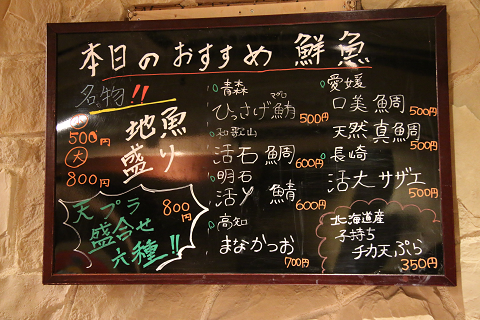 本日のおすすめ 鮮魚
名物!!
小
500円
大
800円
地魚盛り
天プラ
盛合せ
六種!!
800円
青森
マグロ
ひっさげ鮪 500円
和歌山
活石鯛 600円
明石
活〆鯖 600円
高知
まながつお 700円
愛媛
口美鯛 500円
天然真鯛 500円
長崎
活大サザエ 500円
北海道産
子持ち
チカ天ぷら
350円